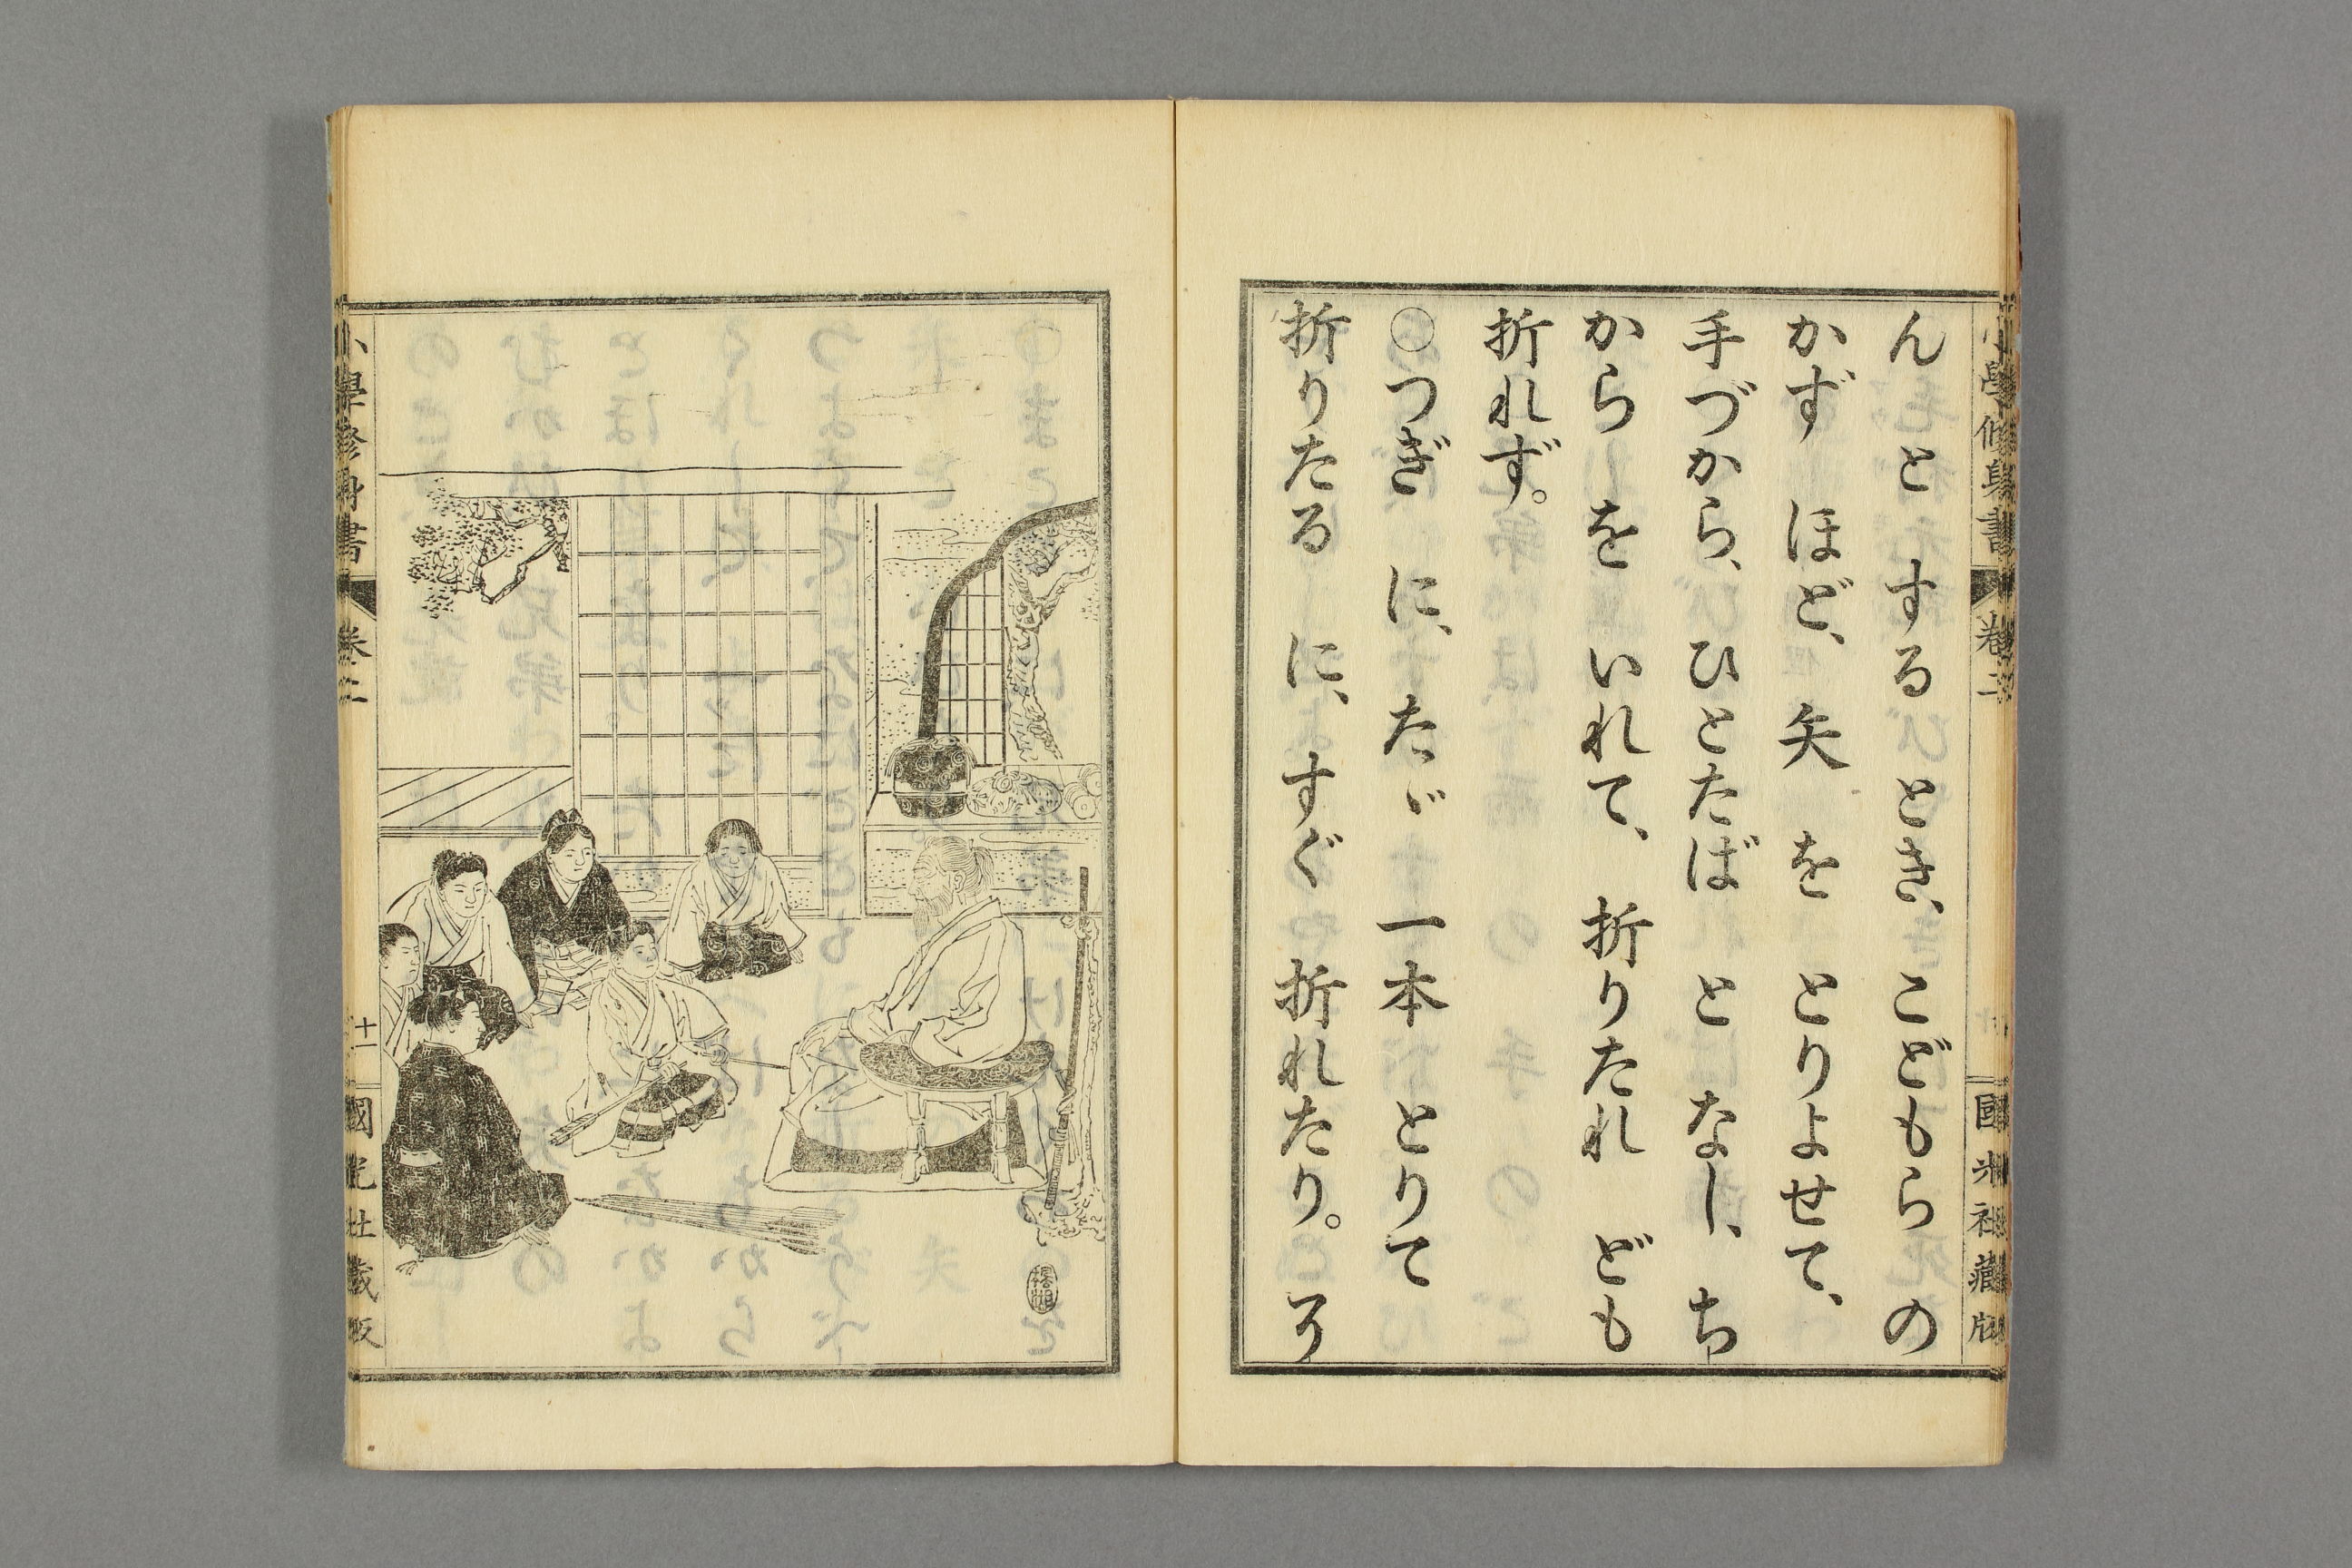 小學修身書 卷二 國光社藏版
んと する とき、こどもらの
かず ほど、矢 を とりよせて、
手づから、ひとたば と なし、ち
から を いれて、折りたれ ども
折れず。
○つぎ に、たゞ 一本 とりて
折りたる に、すぐ 折れたり。そ
小學修身書 卷二 十一 國光社藏版